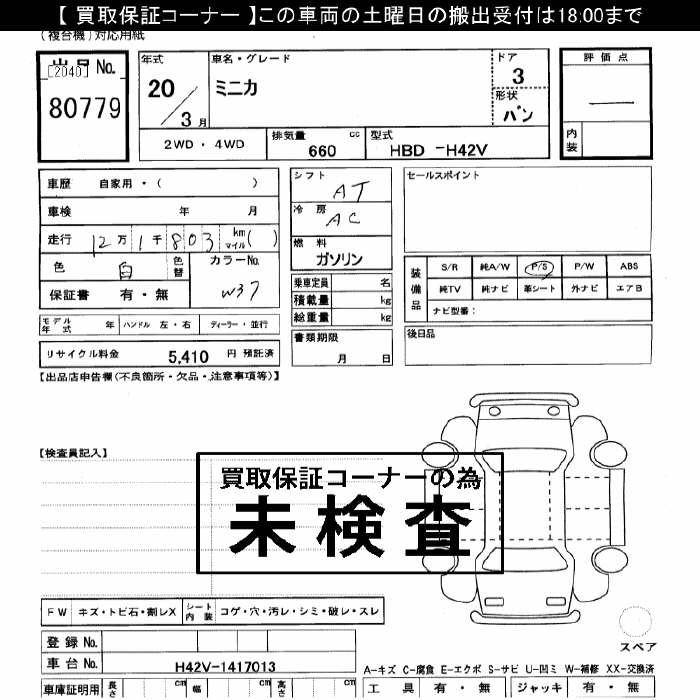 【 買取保証コーナー 】この車両の土曜日の搬出受付は18:00まで
(複合機)対応用紙
出品 No.
[2040]
80779
年式
20/3月
車名・グレード
ミニカ
ドア
3
形状
バン
評価点
―
内装
2WD・4WD
排気量
660
cc
型式
HBD -H42V
車歴 自家用・( )
車検 年 月
走行 12万1千803 km マイル( )
色 白 色替
カラーNo.
W37
保証書 有・無
シフト
AT
冷房
AC
燃料
ガソリン
乗車定員 名
積載量 kg
総重量 kg
セールスポイント
装備品
S/R 純A/W P/S P/W ABS
純TV 純ナビ 革シート 外ナビ エアB
ナビ型番:
モデル年式 年 ハンドル 左・右 ディーラー・並行
書類期限
月 日
後日品
リサイクル料金 5,410 円 預託済
【出品店申告欄(不良箇所・欠品・注意事項等)】
【検査員記入】
買取保証コーナーの為
未検査
FW キズ・トビ石・割レX シート内装 コゲ・穴・汚レ・シミ・破レ・スレ
スペア
登録 No.
車台 No. H42V-1417013
A-キズ C-腐食 E-エクボ S-サビ U-凹ミ W-補修 XX-交換済
車庫証明用 長さ cm 幅 cm 高さ cm
工具 有・無 ジャッキ 有・無